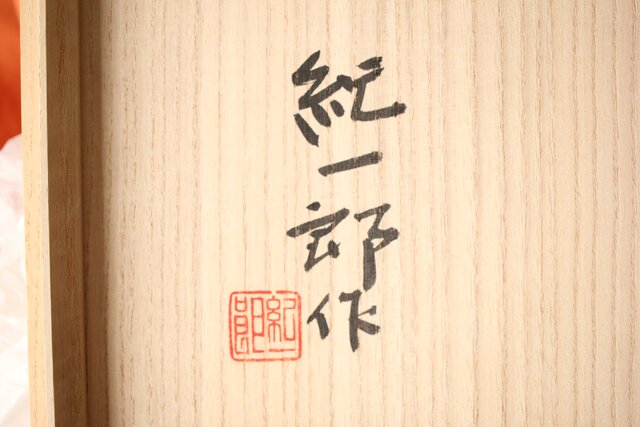 紀一郎作
紀一郎